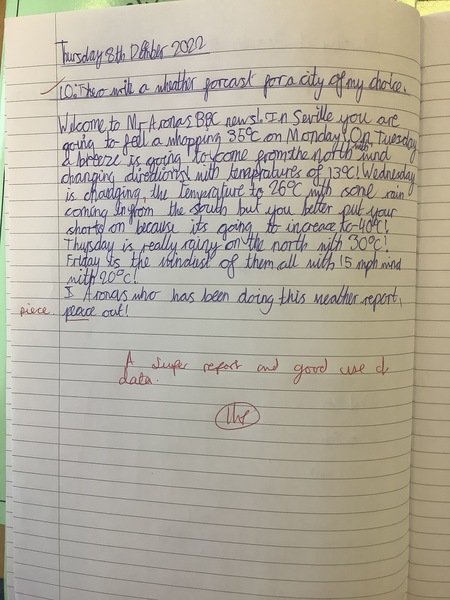 Thursday 8th December 2022
LO: To write a wheather forcast for a city of my choice.
Welcome to Mr Aronas BBC news! In Seville you are
going to fell a whopping 35°C on Monday! On Tuesday
a breeze is going to come from the north wind
changing directions! with tempratures of 13°C! Wednesday
is changing the temperature to 26°C with some rain
coming in from the south but you better put your
shorts on because its going to increase to 40°C!
Thursday is really rainy on the north with 30°C!
Friday is the windust of them all with 15 mph wind
with 20°C!
I Aronas who has been doing this weather report,
piece peace out!
A super report and good use of
data.